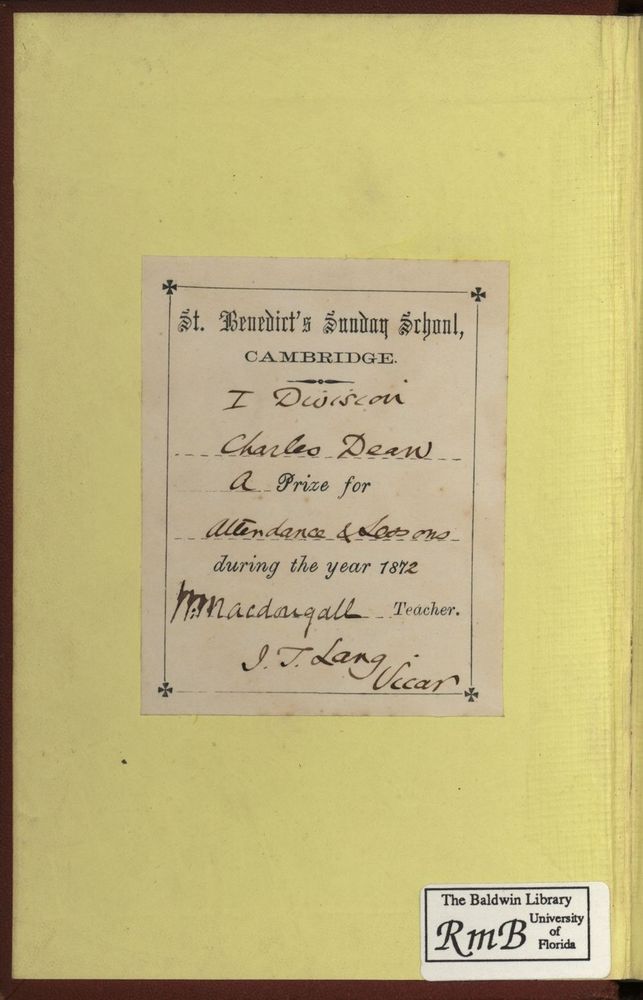 St. Benedict's Sunday School,
CAMBRIDGE.
I Division
Charles Dean
A Prize for
Attendance & Lessons
during the year 1872
Macdougall Teacher.
J. T. Lang
Vicar
The Baldwin Library
RmB University
of
Florida